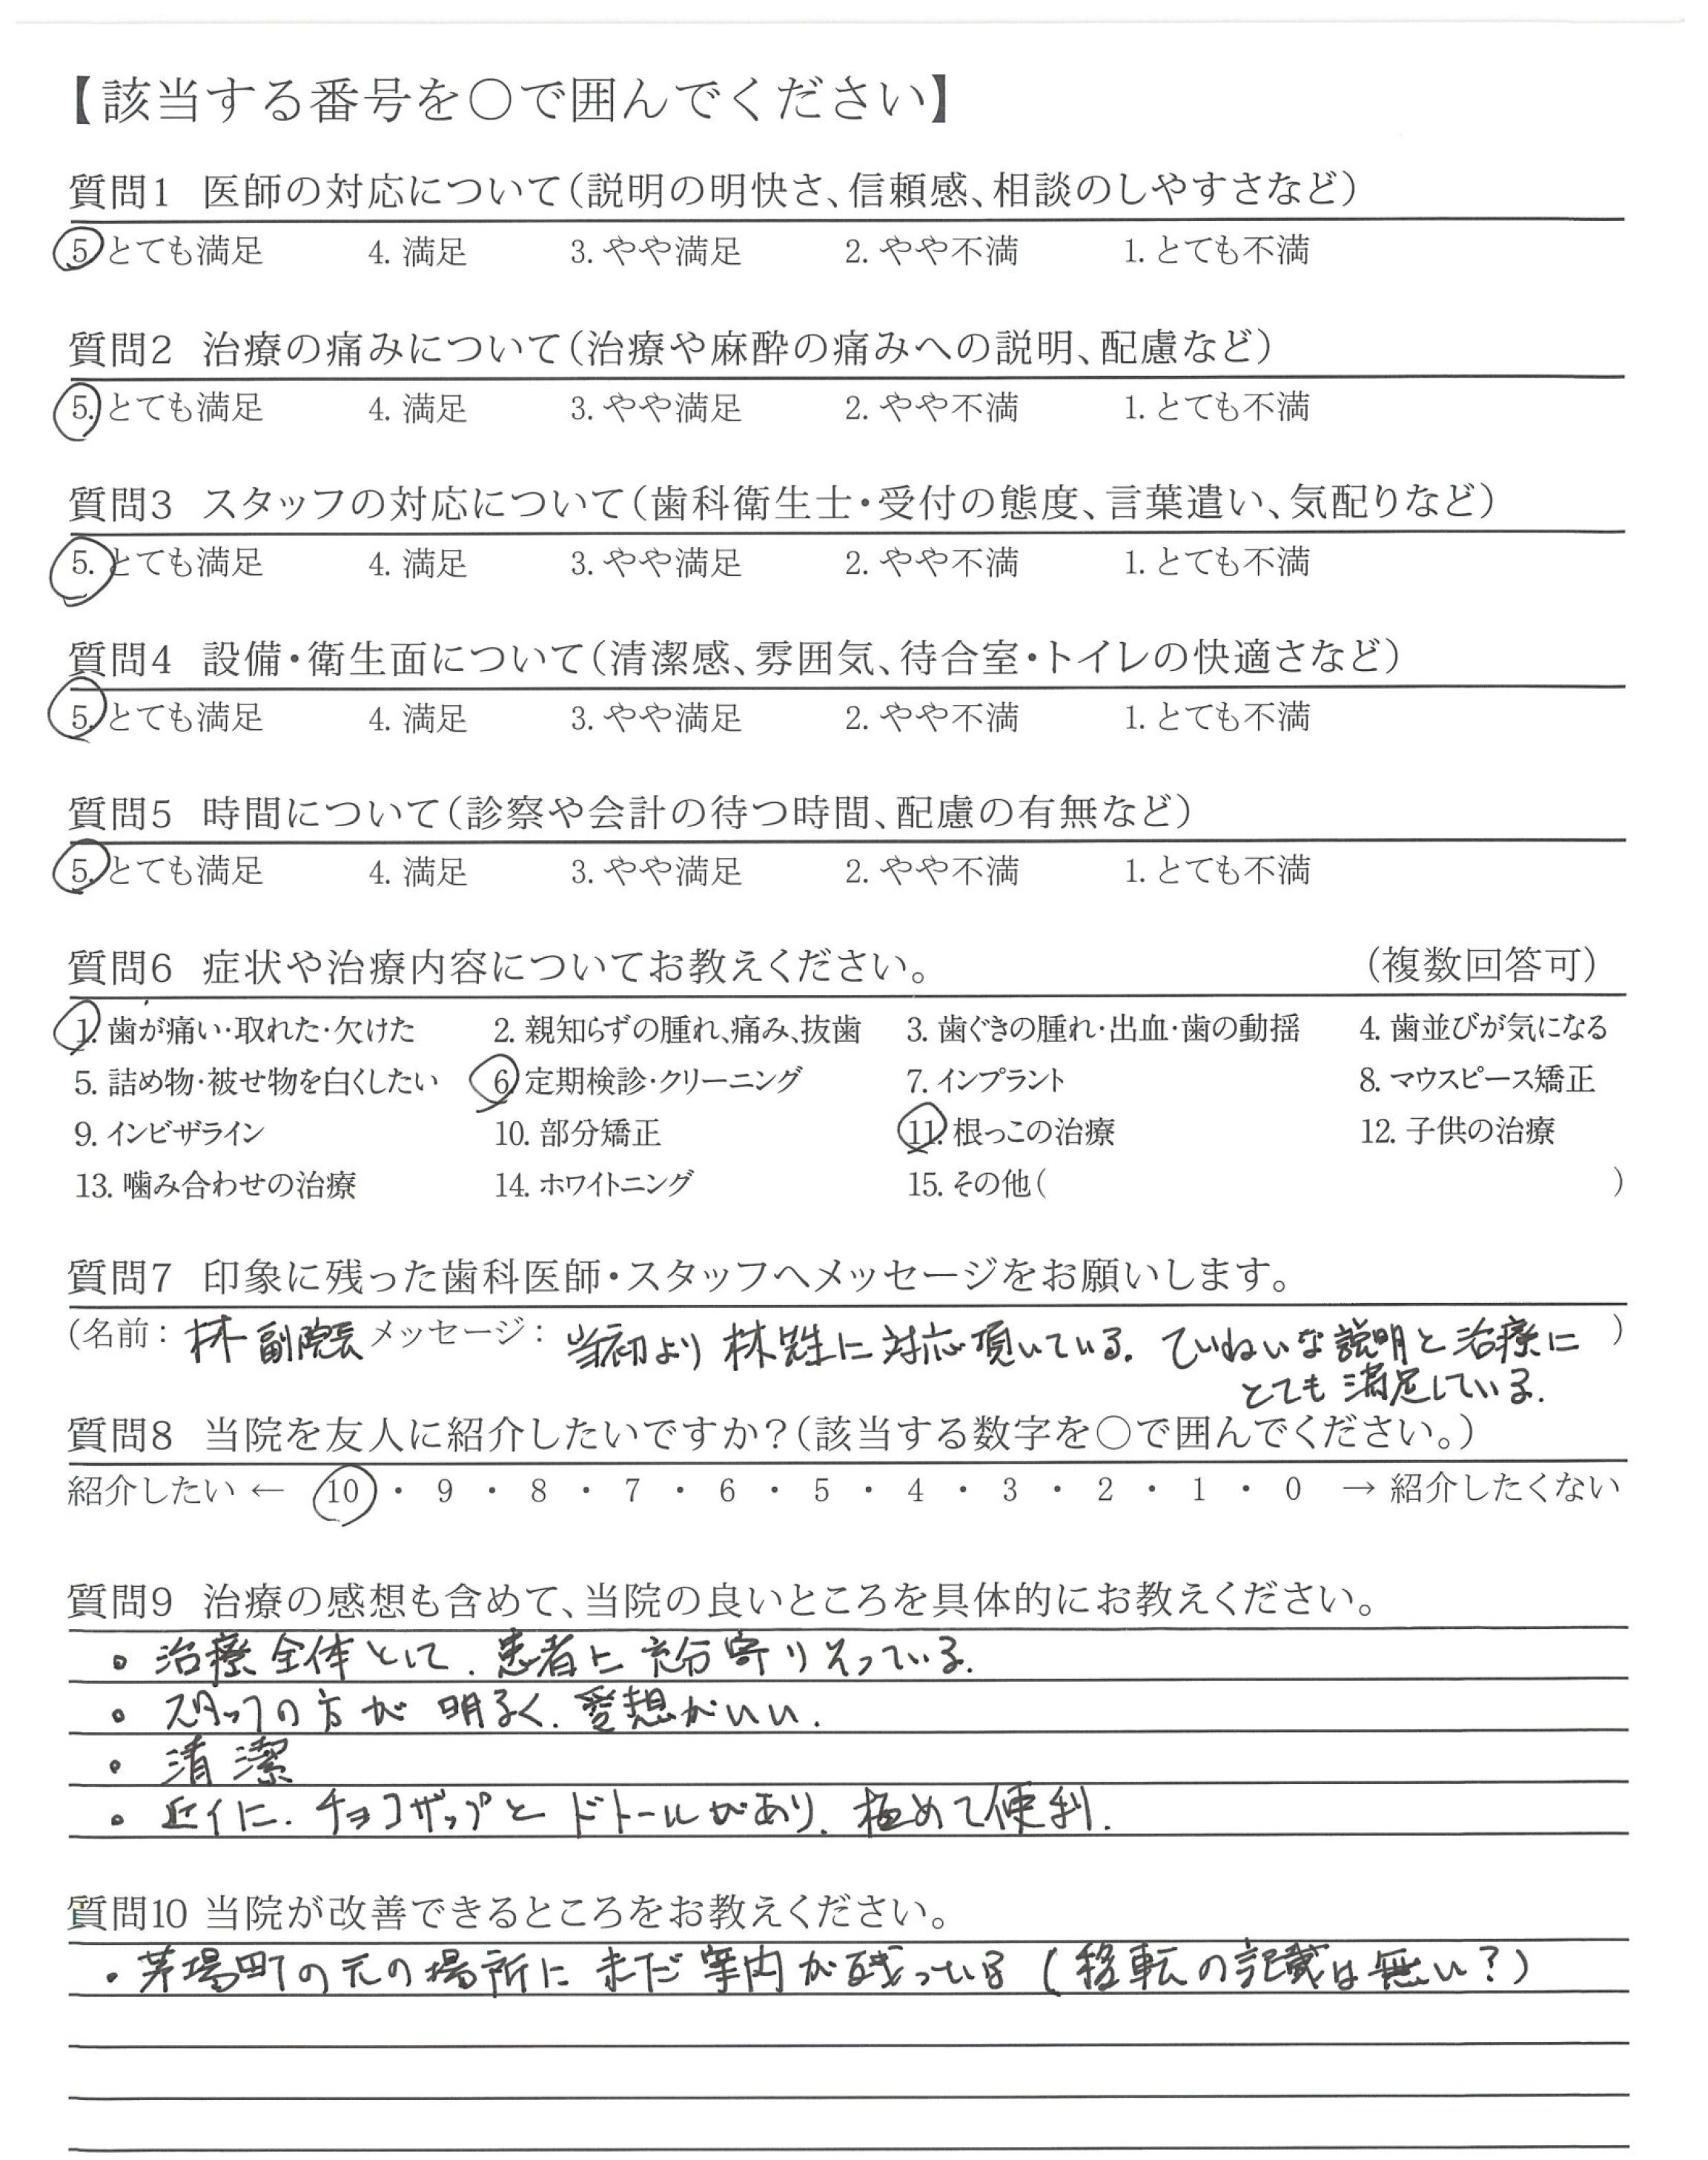 【該当する番号を○で囲んでください】
質問1 医師の対応について(説明の明快さ、信頼感、相談のしやすさなど)
5 とても満足 4. 満足 3. やや満足 2. やや不満 1. とても不満
質問2 治療の痛みについて(治療や麻酔の痛みへの説明、配慮など)
5. とても満足 4. 満足 3. やや満足 2. やや不満 1. とても不満
質問3 スタッフの対応について(歯科衛生士・受付の態度、言葉遣い、気配りなど)
5. とても満足 4. 満足 3. やや満足 2. やや不満 1. とても不満
質問4 設備・衛生面について(清潔感、雰囲気、待合室・トイレの快適さなど)
5. とても満足 4. 満足 3. やや満足 2. やや不満 1. とても不満
質問5 時間について(診察や会計の待つ時間、配慮の有無など)
5. とても満足 4. 満足 3. やや満足 2. やや不満 1. とても不満
質問6 症状や治療内容についてお教えください。 (複数回答可)
1. 歯が痛い・取れた・欠けた 2. 親知らずの腫れ、痛み、抜歯 3. 歯ぐきの腫れ・出血・歯の動揺 4. 歯並びが気になる
5. 詰め物・被せ物を白くしたい 6. 定期検診・クリーニング 7. インプラント 8. マウスピース矯正
9. インビザライン 10. 部分矯正 11. 根っこの治療 12. 子供の治療
13. 噛み合わせの治療 14. ホワイトニング 15. その他( )
質問7 印象に残った歯科医師・スタッフへメッセージをお願いします。
(名前: 林副院長 メッセージ: 当初より林先生に対応頂いている. ていねいな説明と治療に )
とても満足している.
質問8 当院を友人に紹介したいですか?(該当する数字を○で囲んでください。)
紹介したい ← 10 ・ 9 ・ 8 ・ 7 ・ 6 ・ 5 ・ 4 ・ 3 ・ 2 ・ 1 ・ 0 → 紹介したくない
質問9 治療の感想も含めて、当院の良いところを具体的にお教えください。
。治療全体として. 患者に充分寄りそっている.
。スタッフの方が明るく. 愛想がいい.
。清潔
。近くに. チョコザップとドトールがあり. 極めて便利.
質問10 当院が改善できるところをお教えください。
・茅場町の元の場所にまだ案内が残っている (移転の記載は無い?)